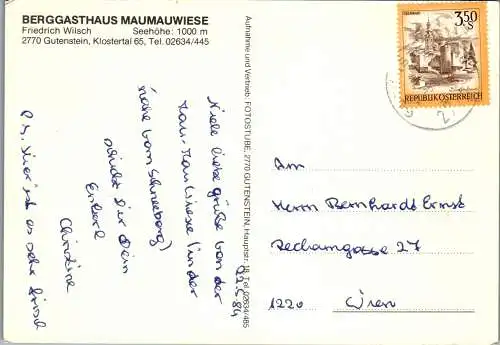 BERGGASTHAUS MAUMAUWIESE
Friedrich Wilsch Seehöhe: 1000 m
2770 Gutenstein, Klostertal 65, Tel. 02634/445
Aufnahme und Vertrieb: FOTOSTUBE, 2770 GUTENSTEIN, Hauptstr. 18, Tel. 02634/485
3.50 S
REPUBLIK ÖSTERREICH
22.5.84
Viele liebe Grüße von der
Mau-Mau Wiese (in der
Nähe vom Schneeberg)
sendet Dir Dein
Enkerl
Christine
P.S. Hier ist es sehr
An
Herrn Bernhardt Ernst
27
1220 Wien